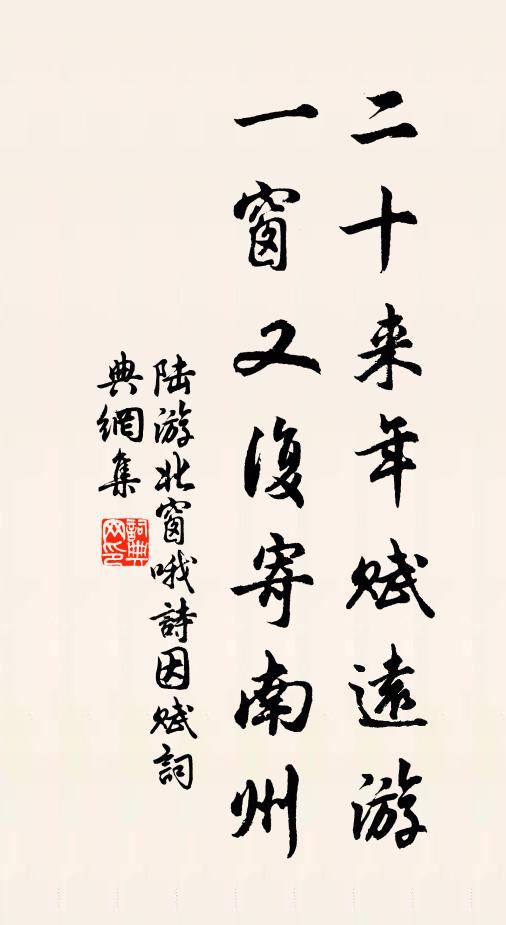 二十来年赋遠游
一窗又復寄南州
陆游北窗哦詩因赋詞
典網集
詞典网印